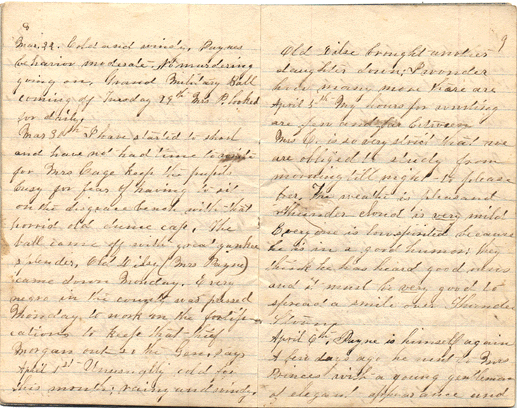 8
Mar. 22. Cold and windy. Paynes
behavior moderate. No murdering
going on. Grand Military Ball
coming off Tuesday 29th Mrs P. looked
for
Mar 30th I have started to school
and have not had time to write
for Mrs Cage keeps the pupils
busy for fear of having to sit
on the disgrace bench with that
horrid old dunce cap. The
ball came off with great yankee
splendor. Old (Mrs Payne)
came down Monday. Every
negro in the county was pressed
Monday to work in the fortifi-
cations to keep that thief
Morgan out as the Gen. says
April 1st Unusually cold for
this month; rainy and windy.
9
Old brought another
daughter down; I wonder
how many more there are
April 5th My hours for writing
are few and far between
Mrs C. is so very strict that we
are obliged to study from
morning till night to please
her. The weather is pleasant
Thunder cloud is very mild
Everyone is low spirited because
he is in a good humor; they
think he has heard good news
and it must be very good to
spread a smile over Thunder
Storm
April 6th Payne is himself again
A few days ago he sent to Mrs
Princes with a young gentleman
of elegant appearance and